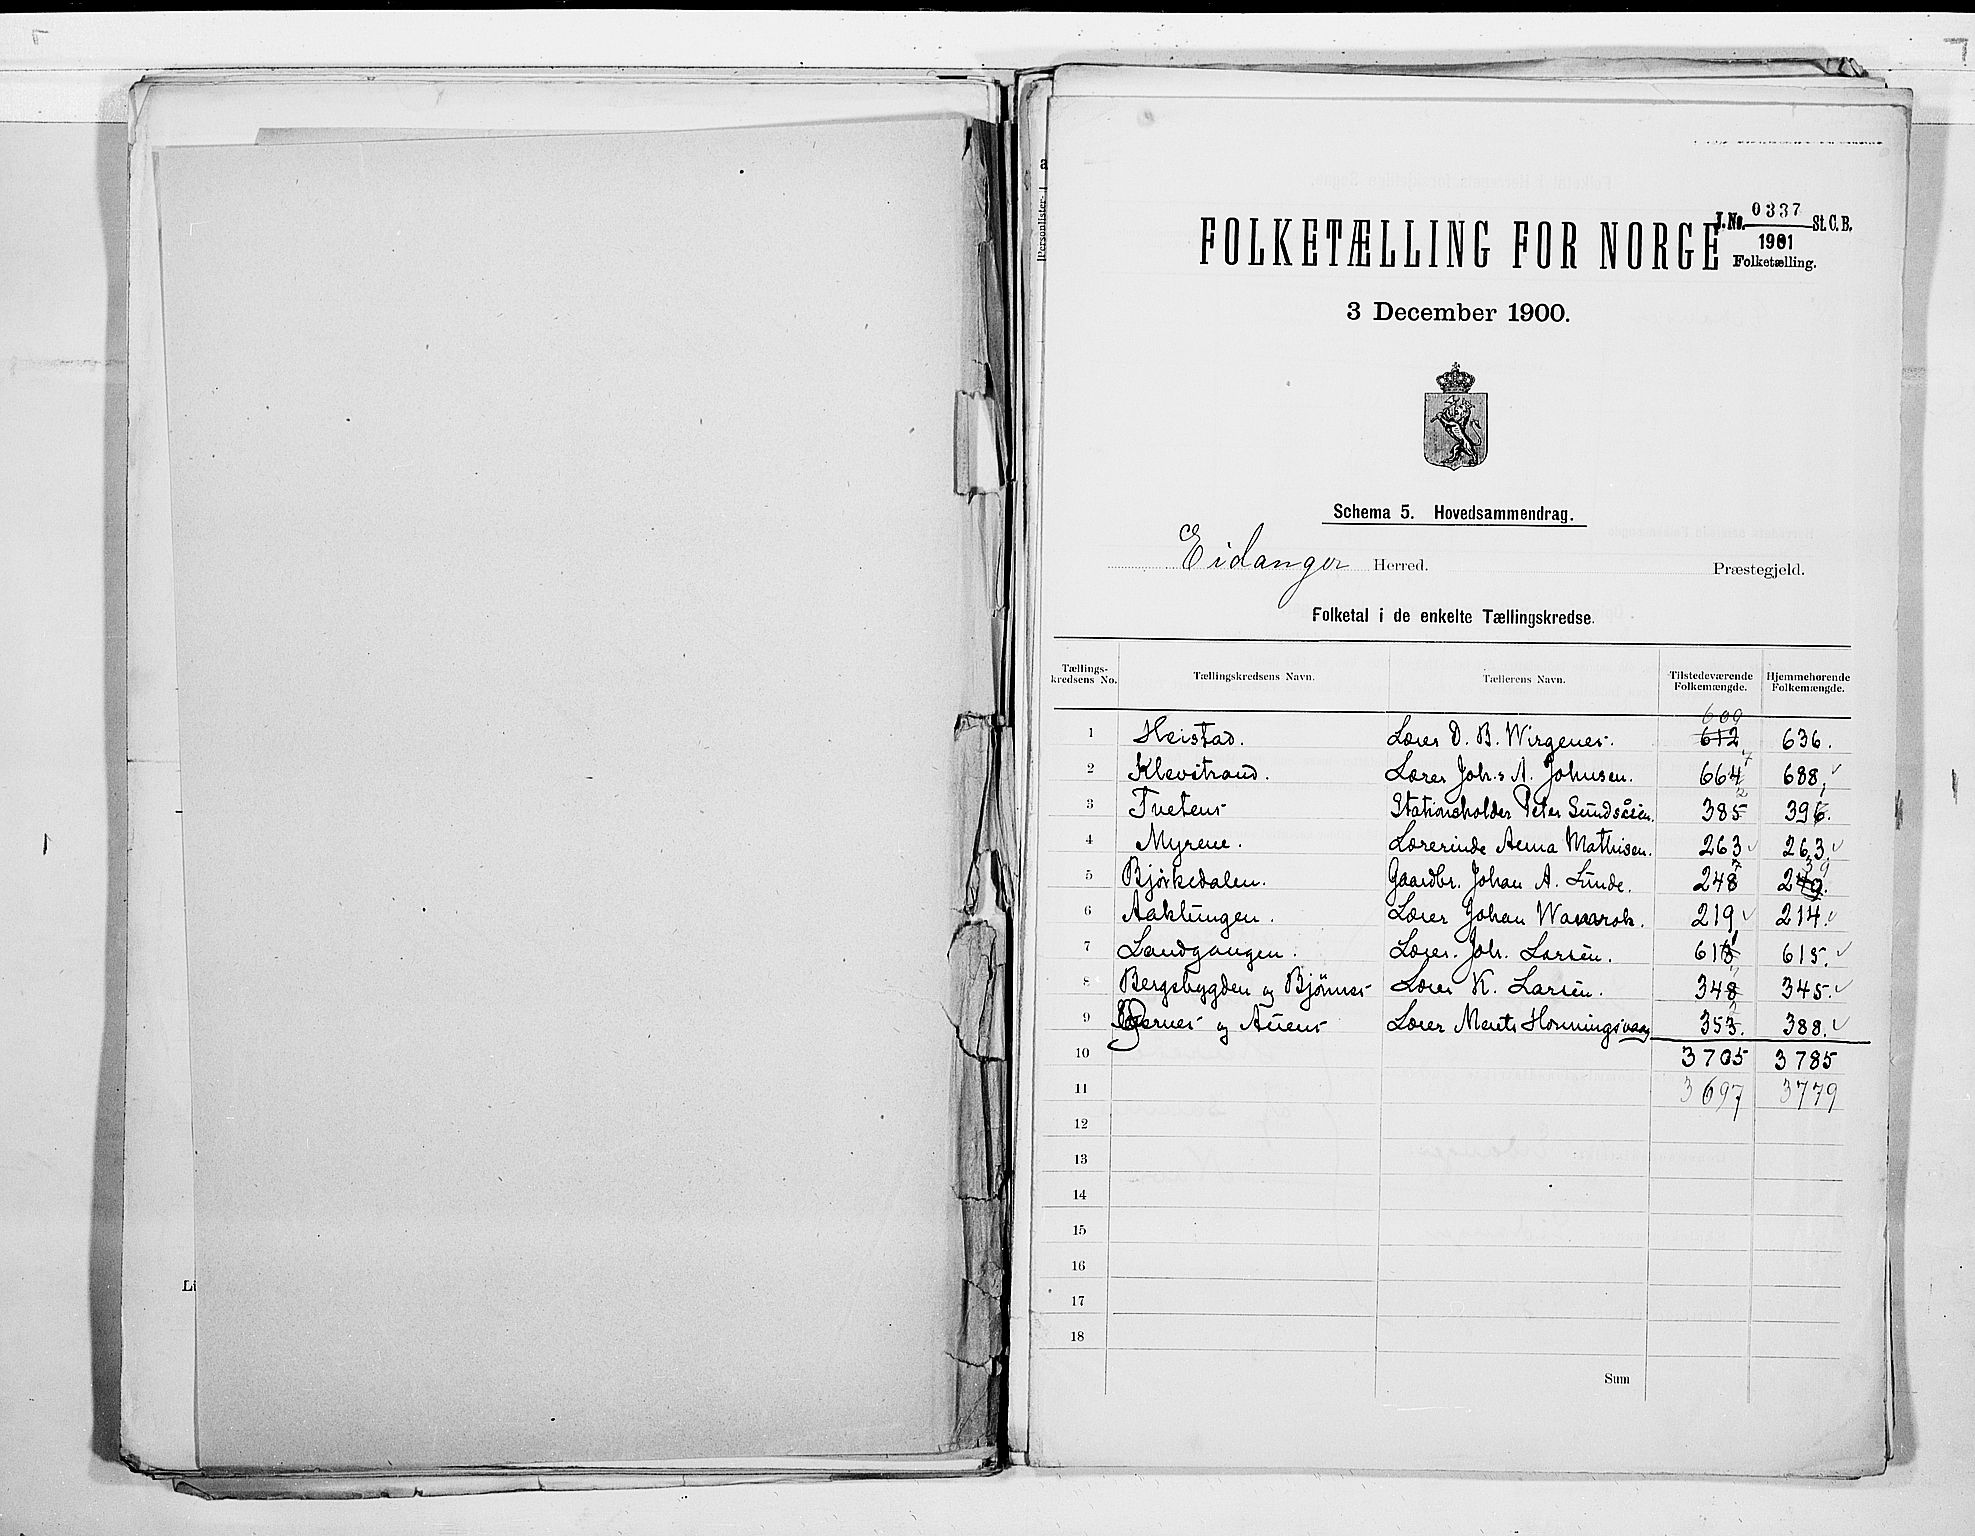 a
Personlister
J. No. 0337 St. C. B.
1901
Folketælling.
FOLKETÆLLING FOR NORGE
3 December 1900.
Schema 5. Hovedsammendrag.
Eidanger Herred. Præstegjeld.
Folketal i de enkelte Tællingskredse.
Tællingskredsens No. Tællingskredsens Navn. Tællerens Navn. Tilstedeværende Folkemængde. Hjemmehørende Folkemængde.
609
1 Heistad. Lærer D. B. Wirgenes. 612 636.
2 Klevstrand. Lærer Johs A. Johnsen. 664 7 688.
3 Tveten 385 2 396. 1
4 Myrene. Lærerinde Anna Mathisen. 263 263
5 Bjørkedalen. Gaardbr. Johan A. Lunde. 248 7 249. 39
6 Aaklungen. Lærer Johan 219 214.
7 Landgangen. Lærer. Joh. Larsen. 613 1 615.
8 Bergsbygden og Bjønnes Lærer K. Larsen. 348 7 345.
9 og Lærer Honningsvaag 353. 2 388.
10 3705 3785
11 3697 3779
12
13
14
15
16
17
18
Sum
Li